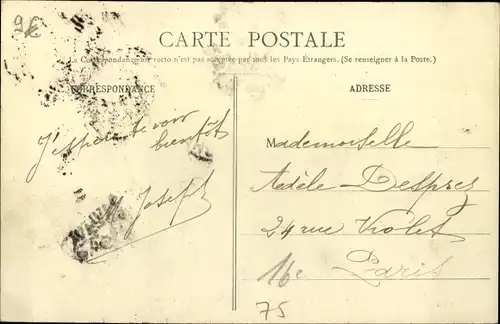 9€
CARTE POSTALE
La Correspondance au recto n'est pas acceptée par tous les Pays Étrangers. (Se renseigner à la Poste.)
CORRESPONDANCE
J'espère te voir
bientôt
Joseph
ADRESSE
Mademoiselle
Adèle Desprez
24 rue Violet
16e Paris
75